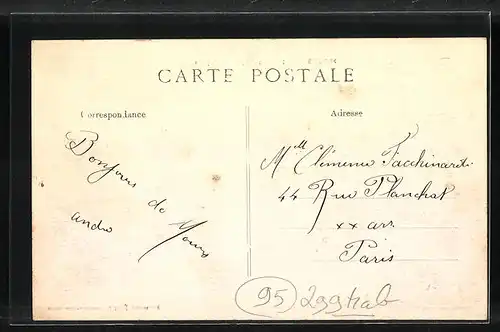 CARTE POSTALE
Correspondance
Adresse
Bonjours de
andré
Mlle Clémence Facchinardi
44 Rue Planchat
xx arr.
Paris
95 299